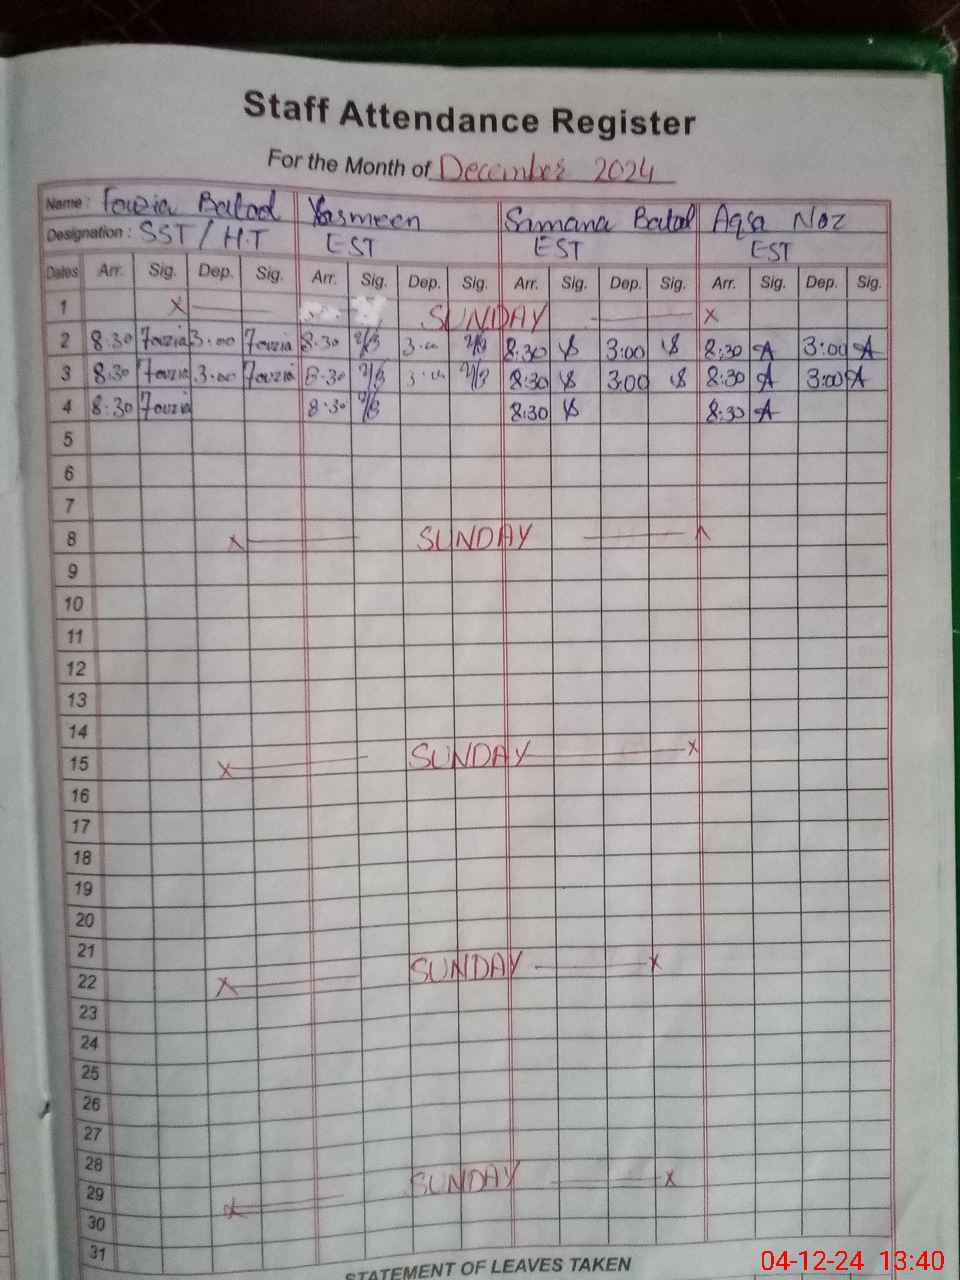 Staff Attendance Register
For the Month of December 2024
Name: Fouzia Batool Yasmeen Samana Batol Aqsa Naz
Designation: SST / H.T EST EST EST
Dates Arr. Sig. Dep. Sig. Arr. Sig. Dep. Sig. Arr. Sig. Dep. Sig. Arr. Sig. Dep. Sig.
1 X SUNDAY X
2 8:30 Fouzia 3:00 Fouzia 8:30 3:00 8:30 3:00 8:30 A 3:00 A
3 8:30 Fouzia 3:00 Fouzia 8:30 3:00 8:30 3:00 8:30 A 3:00 A
4 8:30 Fouzia 8:30 8:30 8:30 A
5
6
7
8 X SUNDAY X
9
10
11
12
13
14
15 X SUNDAY X
16
17
18
19
20
21
22 X SUNDAY X
23
24
25
26
27
28
29 X SUNDAY X
30
31
STATEMENT OF LEAVES TAKEN
04-12-24 13:40